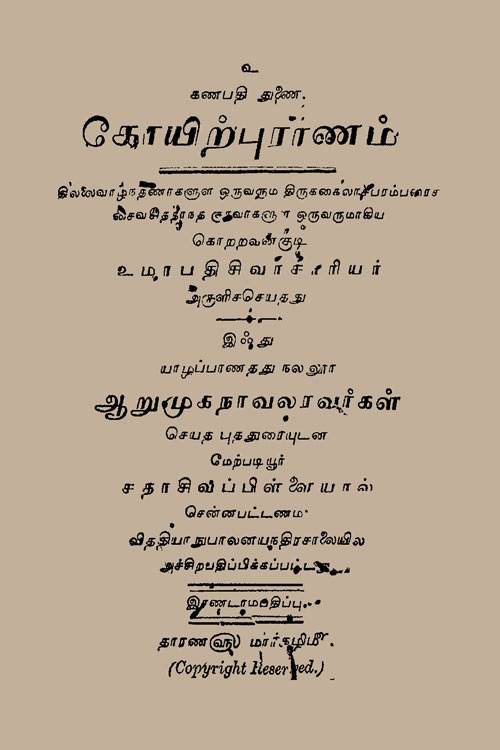 உ
கணபதி துணை.
கோயிற்புராணம்
தில்லைவாழ்ந்தணர்களுள் ஒருவரும் திருக்கைலாசபரம்பரைச்
சைவசித்தாந்த குரவர்களுள் ஒருவருமாகிய
கொற்றவன்குடி
உமாபதிசிவாசாரியர்
அருளிச்செய்தது
இஃது
யாழ்ப்பாணத்து நல்லூர்
ஆறுமுகநாவலரவர்கள்
செய்த புத்துரையுடன்
மேற்படியூர்
சதாசிவப்பிள்ளையால்
சென்னபட்டணம்
வித்தியாநுபாலனயந்திரசாலையில்
அச்சிற்பதிப்பிக்கப்பட்டது.
இரண்டாம்பதிப்பு.
தாரண௵ மார்கழி௴.
(Copyright Reserved.)